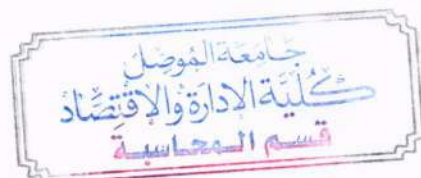 جَامعَة المُوصِل
كُليَّة الإدارَة وَالاقتِصَاد
قسم المحاسبة